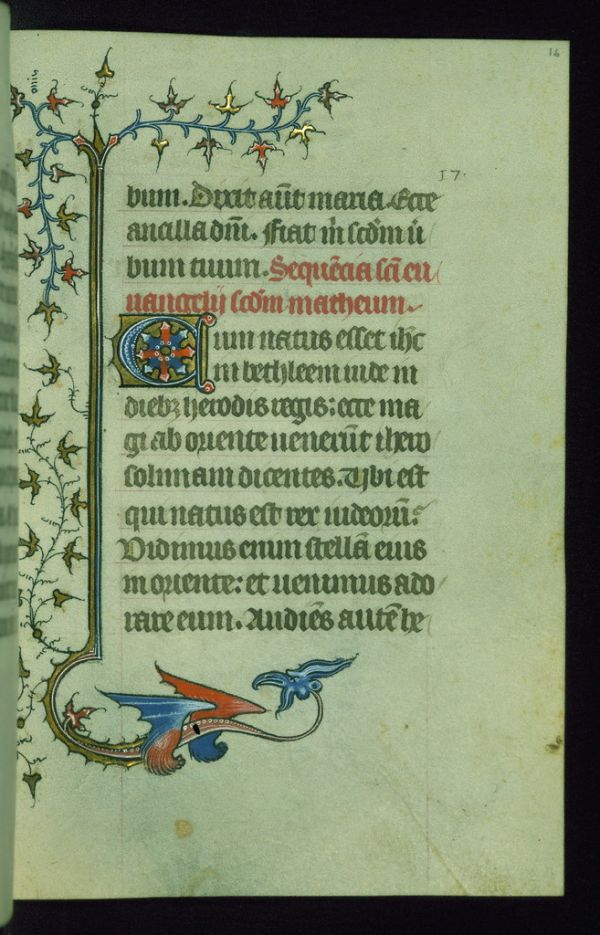 16
17.
bum. Dixit aūt maria. Ecce
ancilla dm̄. Fiat m̄ scdm̄ ū
bum tuum. Sequēcia scī eu
uangelij scdm̄ matheum.
Cum natus esset ihc̄
in bethleem iude in
diebꝫ herodis regis: ecce ma
gi ab oriente uenerūt ihero
solimam dicentes. Ubi est
qui natus est rex iudeorū?
Vidimus enim stellā eius
in oriente: et uenimus ado
rare eum. Audiēs autē he